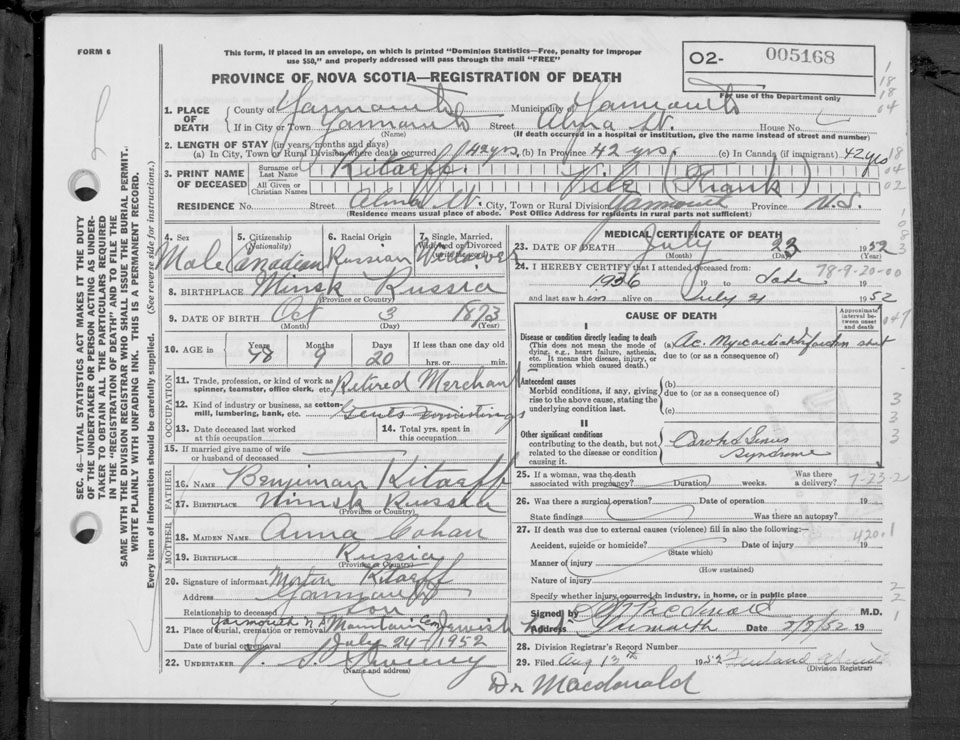 FORM 6
This form, if placed in an envelope, on which is printed "Dominion Statistics—Free, penalty for improper
use $50," and properly addressed will pass through the mail "FREE"
O2- 005168
For use of the Department only
PROVINCE OF NOVA SCOTIA—REGISTRATION OF DEATH
1. PLACE OF DEATH
County of Yarmouth Municipality of Yarmouth
If in City or Town Yarmouth Street Alma St. House No.
(Name) (If death occurred in a hospital or institution, give the name instead of street and number)
2. LENGTH OF STAY (in years, months and days)
(a) In City, Town or Rural Division where death occurred 42 yrs. (b) In Province 42 yrs. (c) In Canada (if immigrant) 42 yrs
3. PRINT NAME OF DECEASED
Surname or Last Name Kitaeff
All Given or Christian Names (Frank)
RESIDENCE No. Street Alma St. City, Town or Rural Division Yarmouth Province N.S.
(Residence means usual place of abode. Post Office Address for residents in rural parts not sufficient)
4. Sex 5. Citizenship (Nationality) 6. Racial Origin 7. Single, Married, Widowed or Divorced
Male Canadian Russian Widower
8. BIRTHPLACE Minsk Russia
(Province or Country)
9. DATE OF BIRTH Oct 3 1873
(Month) (Day) (Year)
10. AGE in Years Months Days If less than one day old
78 9 20 hrs. or min.
OCCUPATION
11. Trade, profession, or kind of work as
spinner, teamster, office clerk, etc. Retired Merchant
12. Kind of industry or business, as cotton-
mill, lumbering, bank, etc. Gents Furnishings
13. Date deceased last worked
at this occupation
14. Total yrs. spent in
this occupation
15. If married give name of wife
or husband of deceased
FATHER
16. NAME Benjiman Kitaeff
17. BIRTHPLACE Minsk Russia
(Province or Country)
MOTHER
18. MAIDEN NAME Anna Cohan
19. BIRTHPLACE Russia
(Province or Country)
20. Signature of informant Morton Kitaeff
Address Yarmouth
Relationship to deceased Son
21. Place of burial, cremation or removal Yarmouth N.S. Mountain Cem Jewish
Date of burial or removal July 24 1952
22. UNDERTAKER V. S. Sweeny
(Name and address)
MEDICAL CERTIFICATE OF DEATH
23. DATE OF DEATH July 23 1952
(Month) (Day)
24. I HEREBY CERTIFY that I attended deceased from:
1936 19 to date 19
78-9-20-00
and last saw him alive on July 21 1952
CAUSE OF DEATH
Approximate interval between onset and death
I
Disease or condition directly leading to death
(This does not mean the mode of
dying, e.g., heart failure, asthenia,
etc. It means the disease, injury, or
complication which caused death.)
(a) Ac. Myocardial Infarction short
due to (or as a consequence of)
Antecedent causes
Morbid conditions, if any, giving
rise to the above cause, stating the
underlying condition last.
(b)
due to (or as a consequence of)
(c)
II
Other significant conditions
contributing to the death, but not
related to the disease or condition
causing it.
Carotid Sinus
Syndrome
25. If a woman, was the death
associated with pregnancy? (Duration) weeks.
Was there
a delivery?
7-23-2
26. Was there a surgical operation? Date of operation 19
State findings Was there an autopsy?
27. If death was due to external causes (violence) fill in also the following:—
420.1
Accident, suicide or homicide? Date of injury 19
(State which)
Manner of injury
(How sustained)
Nature of injury
Specify whether injury occurred in industry, in home, or in public place
Signed by Macdonald M.D.
Address Yarmouth Date 8/7/52 19
28. Division Registrar's Record Number
29. Filed Aug 13th 1952
(Division Registrar)
Dr Macdonald
SEC. 46—VITAL STATISTICS ACT MAKES IT THE DUTY
OF THE UNDERTAKER OR PERSON ACTING AS UNDER-
TAKER TO OBTAIN ALL THE PARTICULARS REQUIRED
IN THE "REGISTRATION OF DEATH" AND TO FILE THE
SAME WITH THE DIVISION REGISTRAR WHO SHALL ISSUE THE BURIAL PERMIT.
WRITE PLAINLY WITH UNFADING INK. THIS IS A PERMANENT RECORD.
Every item of information should be carefully supplied. (See reverse side for instructions.)